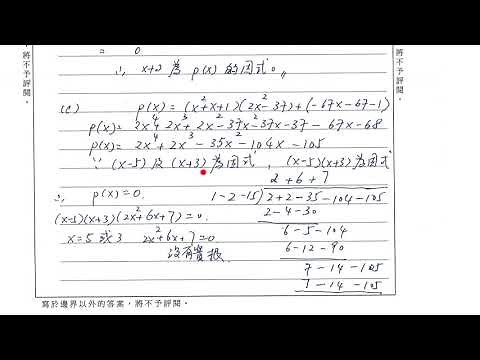 = 0
將不予評閱。
將不予評閱。
∴ x+2 為 p(x) 的因式。
(c) p(x) = (x²+x+1)(2x²-37)+(-67x-67-1)
p(x)= 2x⁴+2x³+2x²-37x²-37x-37-67x-68
p(x)= 2x⁴+2x³-35x²-104x-105
∵ (x-5) 及 (x+3) 為因式, (x-5)(x+3) 為因式
2+6+7
∴ p(x)=0, 1-2-15)2+2-35-104-105
(x-5)(x+3)(2x²+6x+7)=0, 2-4-30
x=5 或 3 2x²+6x+7=0 6-5-104
沒有實根 6-12-90
7-14-105
7-14-105
寫於邊界以外的答案,將不予評閱。